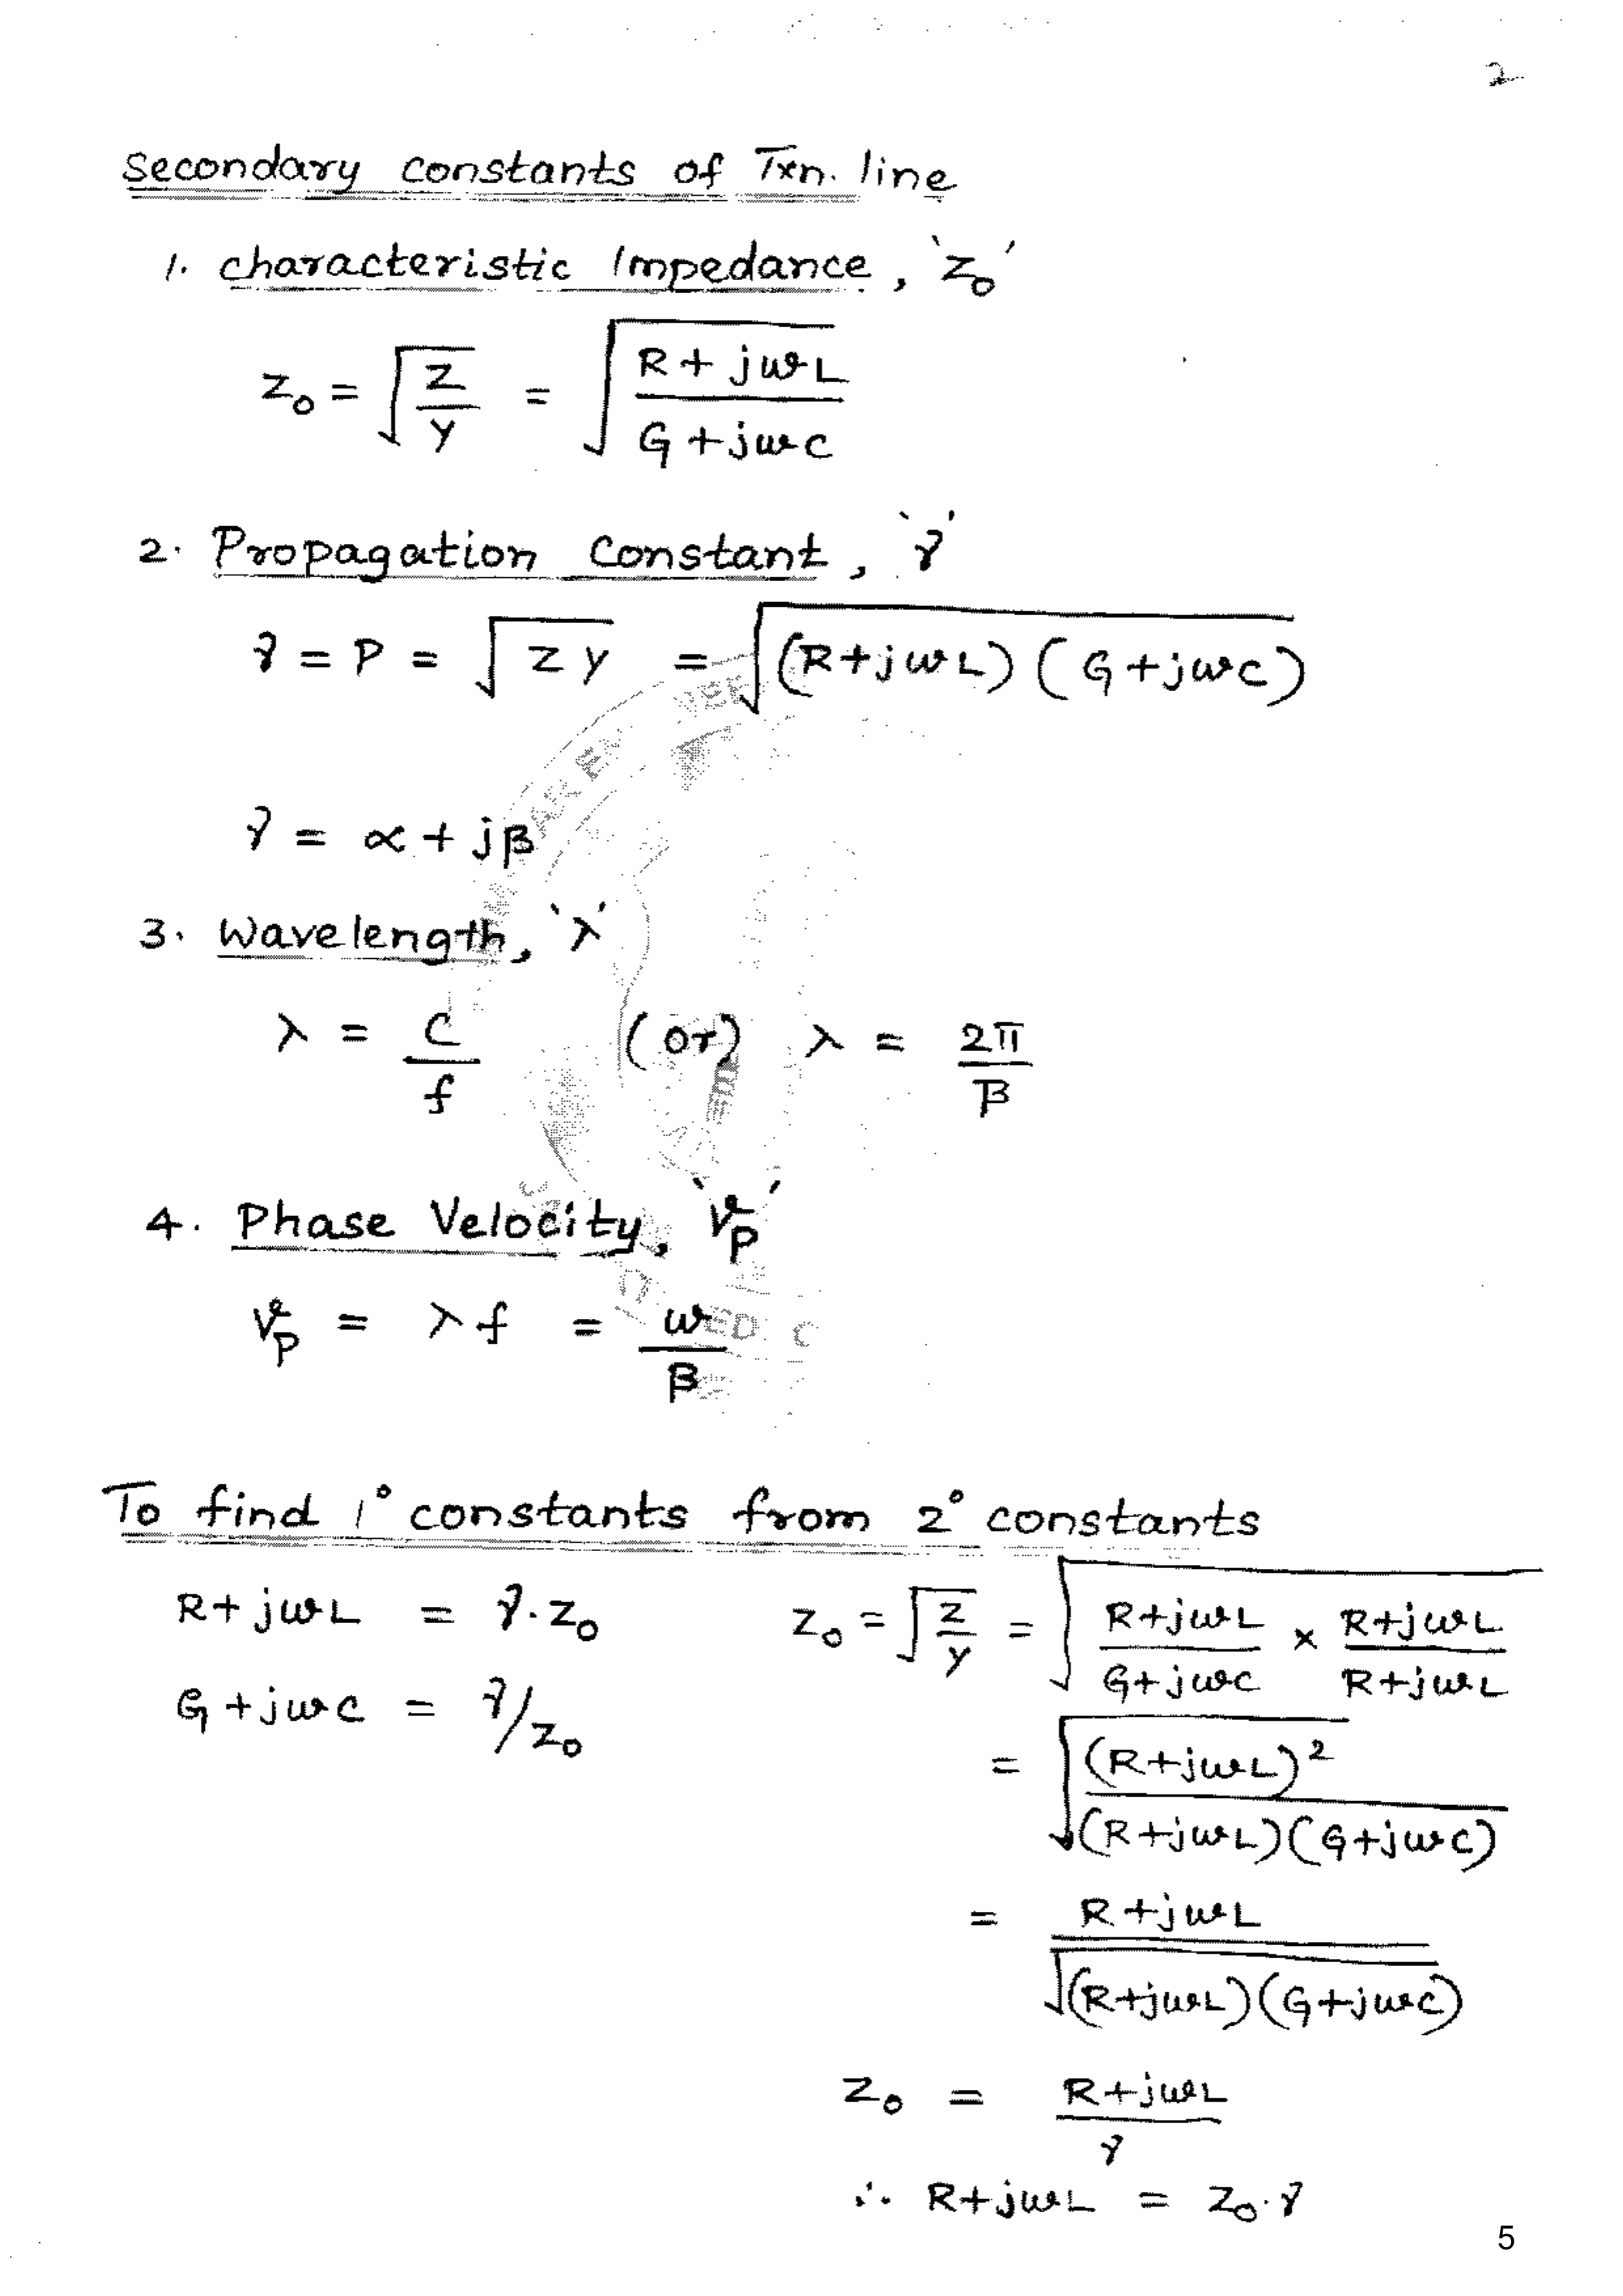 2
Secondary constants of Txn. line
1. Characteristic Impedance, 'Z₀'
Z₀ = √(Z/Y) = √((R + jωL)/(G + jωC))
2. Propagation Constant, 'γ'
γ = P = √(ZY) = √((R+jωL)(G+jωC))
γ = α + jβ
3. Wavelength, 'λ'
λ = C/f (or) λ = 2π/β
4. Phase Velocity, 'Vp'
Vp = λf = ω/β
To find 1° constants from 2° constants
R+jωL = γ.Z₀ Z₀ = √(Z/Y) = √((R+jωL)/(G+jωC) × (R+jωL)/(R+jωL))
G+jωC = γ/Z₀
= √((R+jωL)²/((R+jωL)(G+jωC)))
= (R+jωL)/√((R+jωL)(G+jωC))
Z₀ = (R+jωL)/γ
∴ R+jωL = Z₀.γ
5